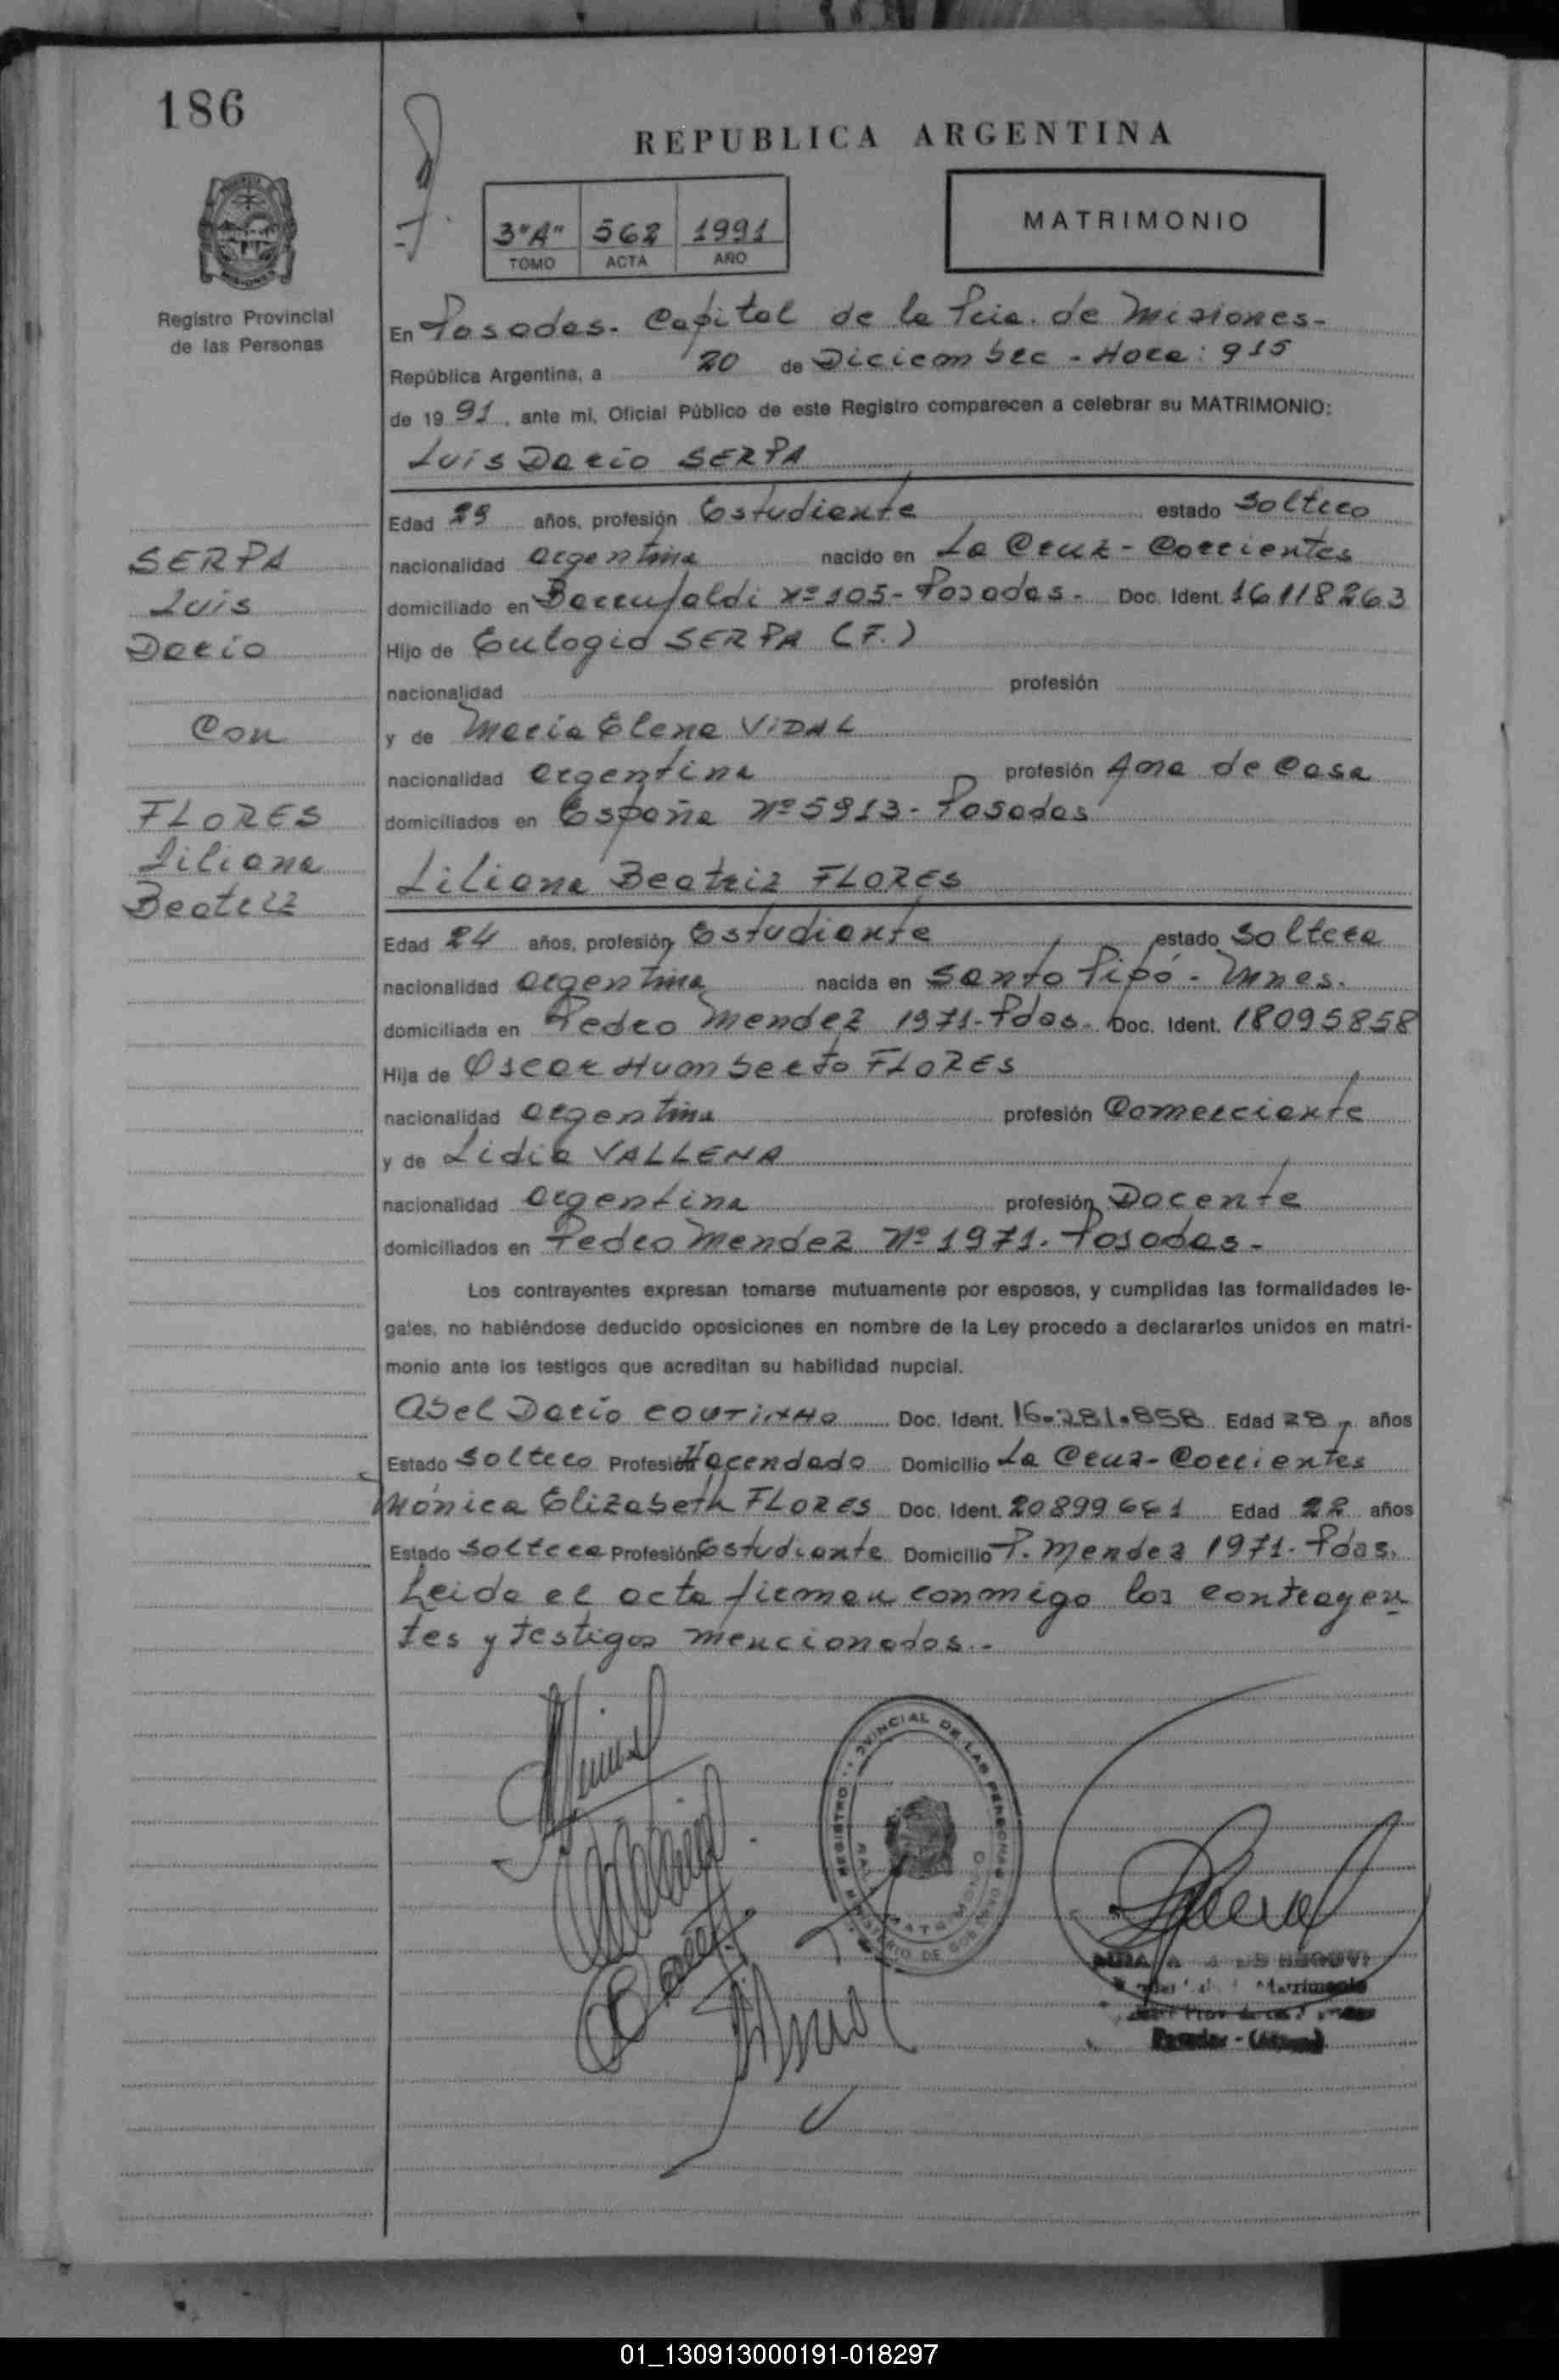 186
REPUBLICA ARGENTINA
3"A" 562 1991
TOMO ACTA AÑO
MATRIMONIO
Registro Provincial
de las Personas
En Posadas. Capital de la Pcia. de Misiones-
República Argentina, a 20 de Diciembre - Hora: 915
de 1991, ante mi, Oficial Público de este Registro comparecen a celebrar su MATRIMONIO:
Luis Dario SERPA
Edad 29 años, profesión Estudiante estado Soltero
SERPA
nacionalidad argentina nacido en La Cruz - Corrientes
Luis
domiciliado en Nº 105- Posadas- Doc. Ident. 16118263
Dario
Hijo de Eulogio SERPA (F.)
nacionalidad profesión
Con
y de Maria Elena VIDAL
nacionalidad argentina profesión Ama de Casa
FLORES
domiciliados en España Nº 5913- Posadas
Liliana
Beatriz
Liliana Beatriz FLORES
Edad 24 años, profesión Estudiante estado Soltera
nacionalidad argentina nacida en Santo Pipó - Mnes.
domiciliada en Pedro Mendez 1971- Pdas- Doc. Ident. 18095858
Hija de Oscar Humberto FLORES
nacionalidad argentina profesión Comerciante
y de Lidia VALLENA
nacionalidad argentina profesión Docente
domiciliados en Pedro Mendez Nº 1971. Posadas-
Los contrayentes expresan tomarse mutuamente por esposos, y cumplidas las formalidades le-
gales, no habiéndose deducido oposiciones en nombre de la Ley procedo a declararlos unidos en matri-
monio ante los testigos que acreditan su habilidad nupcial.
Abel Dario COUTINHO Doc. Ident. 16.281.858 Edad 28 años
Estado Soltero Profesión Hacendado Domicilio La Cruz- Corrientes
Mónica Elizabeth FLORES Doc. Ident. 20899661 Edad 22 años
Estado Soltera Profesión Estudiante Domicilio P. Mendez 1971- Pdas.
Leida el acta firman conmigo los contrayen
tes y testigos mencionados.-
REGISTRO PROVINCIAL DE LAS PERSONAS
MINISTERIO DE GOBIERNO
MATRIMONIO
Matrimonio
01_130913000191-018297